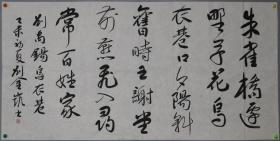 朱雀橋邊
野草花烏
衣巷口夕陽斜
舊時王謝堂
前燕飛入尋
常百姓家
劉禹錫烏衣巷
乙未初夏劉金凱